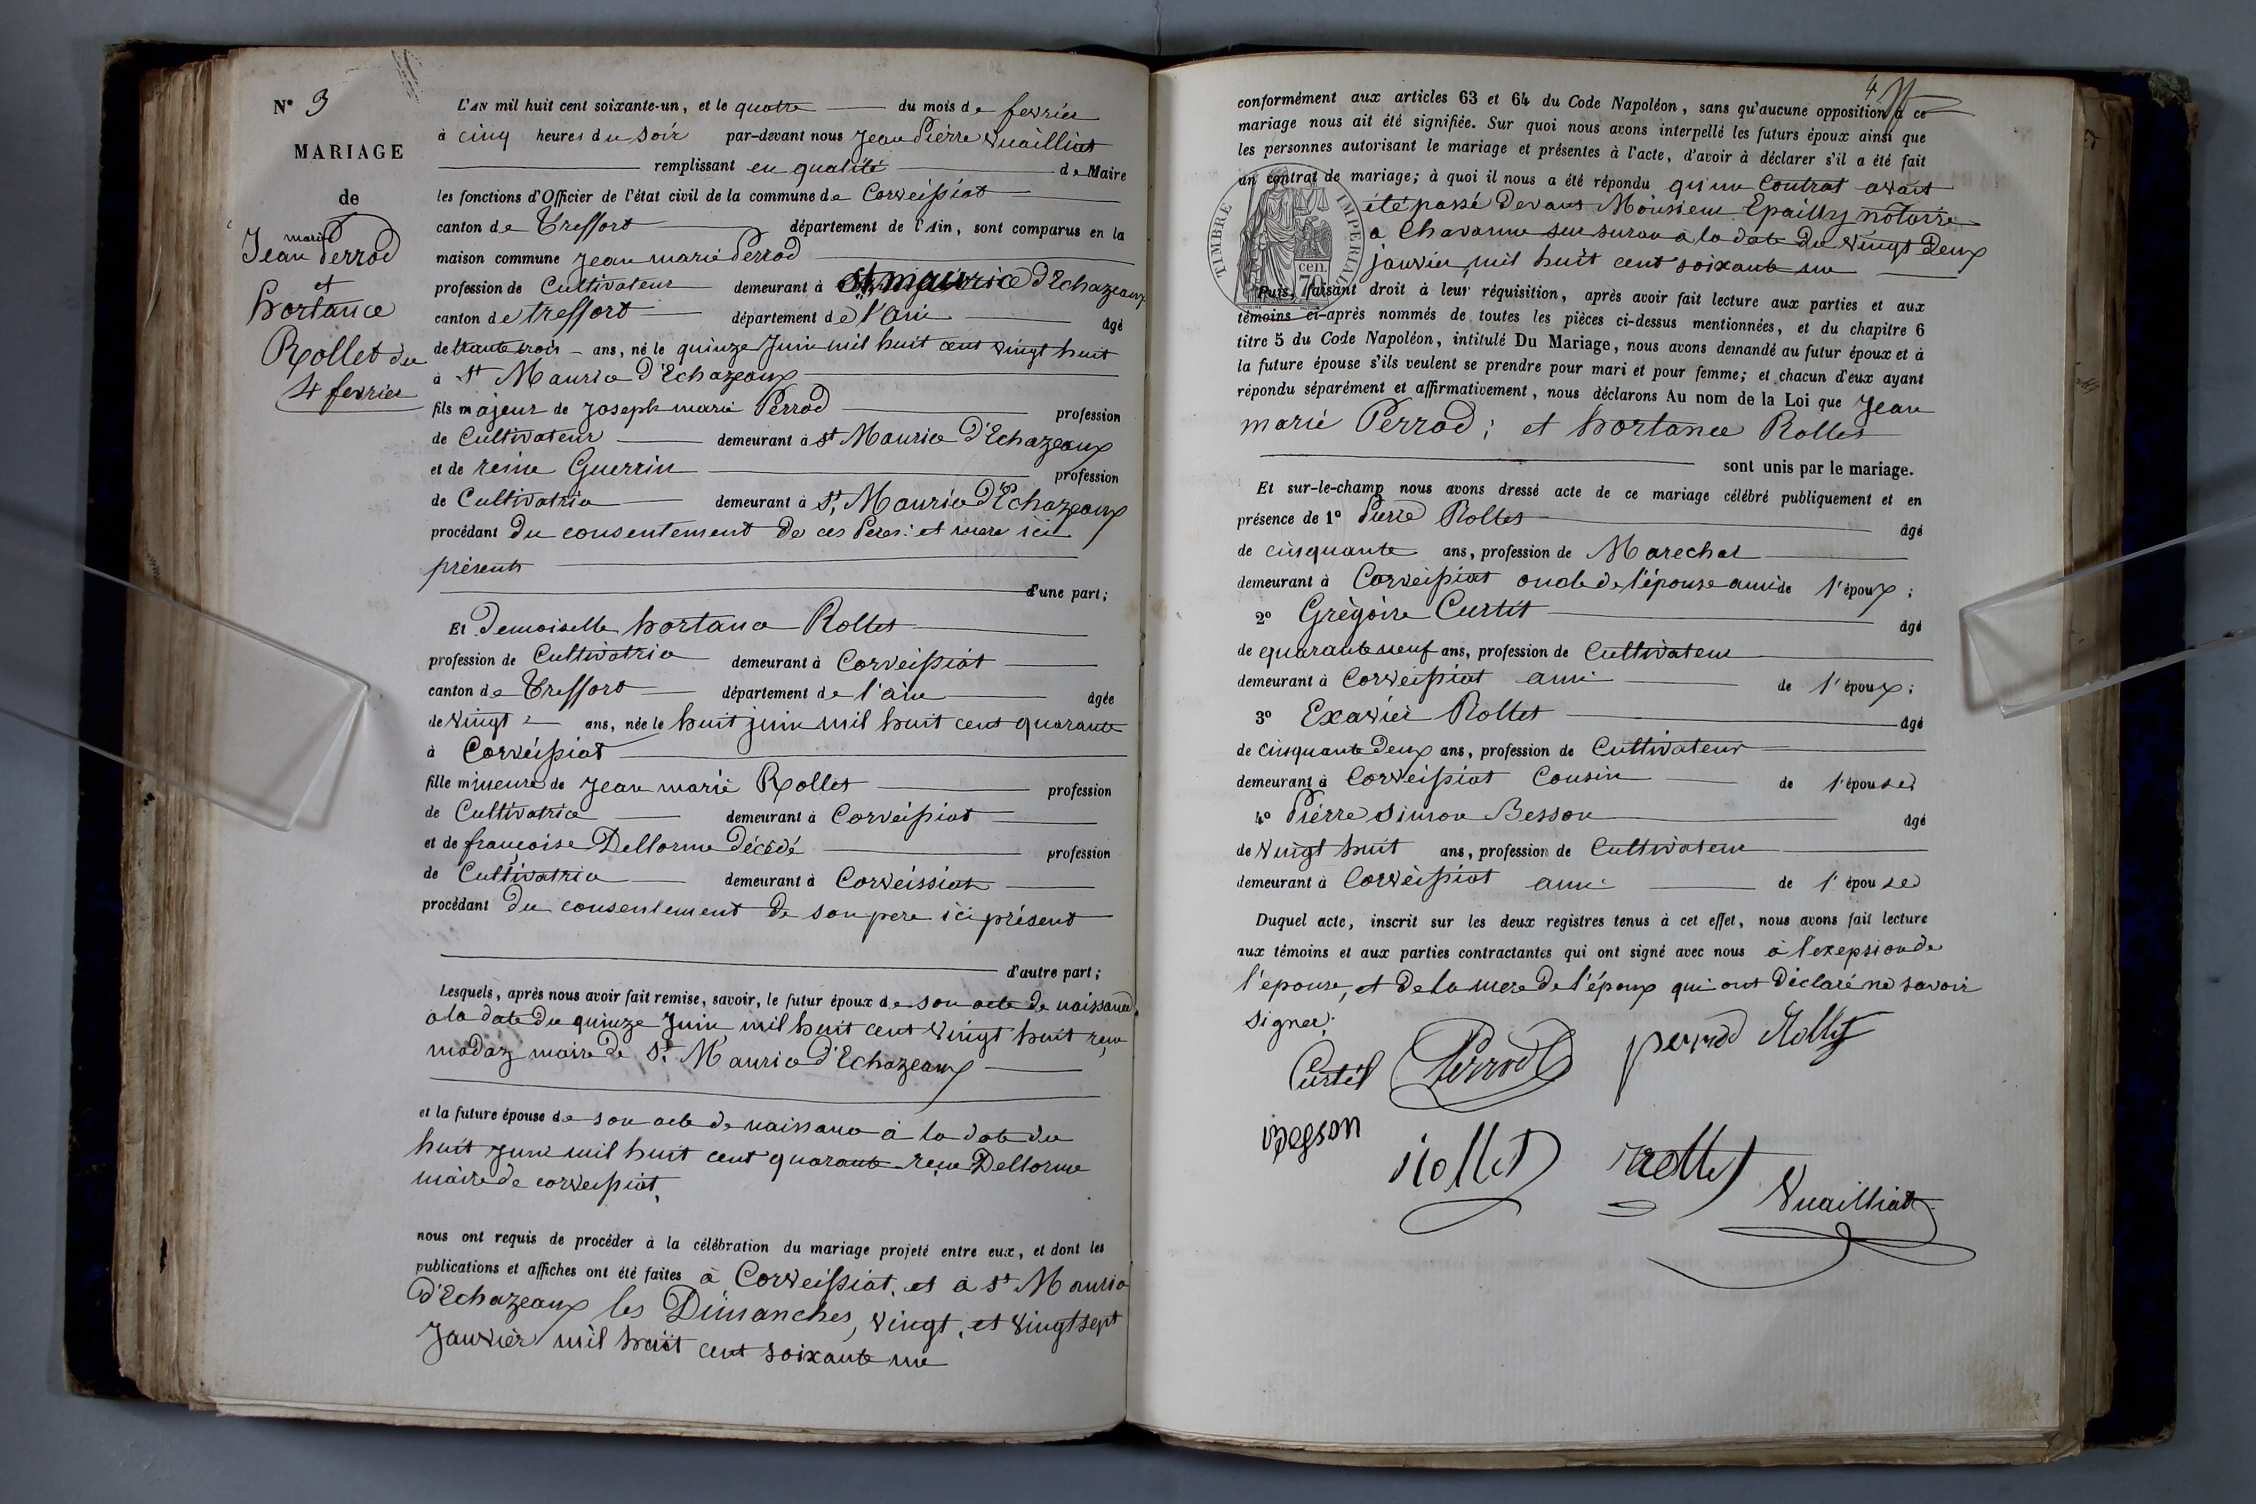 N° 3
MARIAGE
de
marie
Jean Perrod
et
hortance
Rollet du
4 fevrier
L'AN mil huit cent soixante-un, et le quatre du mois de fevrier
à cinq heures du soir par-devant nous Jean Pierre Vuailliat
remplissant en qualité de Maire
les fonctions d'Officier de l'état civil de la commune de Corveissiat
canton de Treffort département de l'Ain, sont comparus en la
maison commune Jean marie Perrod
profession de Cultivateur demeurant à St maurice d'Echazeaux
canton de treffort département de l'Ain âgé
de trante trois ans, né le quinze Juin mil huit cent vingt huit
à St Maurice d'Echazeaux
fils majeur de Joseph marie Perrod profession
de Cultivateur demeurant à St Maurice d'Echazeaux
et de reine Guerrin profession
de Cultivatrice demeurant à St Maurice d'Echazeaux
procédant du consentement de ces Peres et mere ici
présents
d'une part;
Et Demoiselle hortance Rollet
profession de Cultivatrice demeurant à Corveissiat
canton de Treffort département de l'ain âgée
de vingt ans, née le huit juin mil huit cent quarante
à Corveissiat
fille mineure de Jean marie Rollet profession
de Cultivatrice demeurant à Corveissiat
et de françoise Dellorme décédé profession
de Cultivatrice demeurant à Corveissiat
procédant du consentement de son pere ici présent
d'autre part;
Lesquels, après nous avoir fait remise, savoir, le futur époux de son acte de naissance
a la date du quinze Juin mil huit cent vingt huit reçu
modaz maire de St Maurice d'Echazeaux
et la future épouse de son acte de naissance à la date du
huit Juin mil huit cent quarante reçu Dellorme
maire de corveissiat,
nous ont requis de procéder à la célébration du mariage projeté entre eux, et dont les
publications et affiches ont été faites à Corveissiat, et à St Maurice
d'Echazeaux les Dimanches, vingt, et vingt sept
Janvier mil huit cent soixante une
4
conformément aux articles 63 et 64 du Code Napoléon, sans qu'aucune opposition à ce
mariage nous ait été signifiée. Sur quoi nous avons interpellé les futurs époux ainsi que
les personnes autorisant le mariage et présentes à l'acte, d'avoir à déclarer s'il a été fait
un contrat de mariage; à quoi il nous a été répondu qu'un Contrat avait
été passé devant Monsieur Epailly notaire
a Chavanne sur suran a la date du vingt deux
janvier mil huit cent soixante une
TIMBRE IMPERIAL
cen.
70
Puis, faisant droit à leur réquisition, après avoir fait lecture aux parties et aux
témoins ci-après nommés de toutes les pièces ci-dessus mentionnées, et du chapitre 6
titre 5 du Code Napoléon, intitulé Du Mariage, nous avons demandé au futur époux et à
la future épouse s'ils veulent se prendre pour mari et pour femme; et chacun d'eux ayant
répondu séparément et affirmativement, nous déclarons Au nom de la Loi que Jean
marie Perrod; et hortance Rollet
sont unis par le mariage.
Et sur-le-champ nous avons dressé acte de ce mariage célébré publiquement et en
présence de 1° Pierre Rollet âgé
de cinquante ans, profession de Marechal
demeurant à Corveissiat oncle de l'épouse ami de l'époux;
2° Grégoire Curtit âgé
de quarante neuf ans, profession de Cultivateur
demeurant à Corveissiat ami de l'époux;
3° Exavier Rollet âgé
de cinquante deux ans, profession de Cultivateur
demeurant à Corveissiat Cousin de l'épouse
4° Pierre Simon Besson âgé
de vingt huit ans, profession de Cultivateur
demeurant à Corveissiat ami de l'épouse
Duquel acte, inscrit sur les deux registres tenus à cet effet, nous avons fait lecture
aux témoins et aux parties contractantes qui ont signé avec nous à l'exepsion de
l'épouse, et de la mere de l'époux qui ont déclaré ne savoir
signer.
Curtil Perrod perrod Rollet
Besson rollet rollet Vuailliat